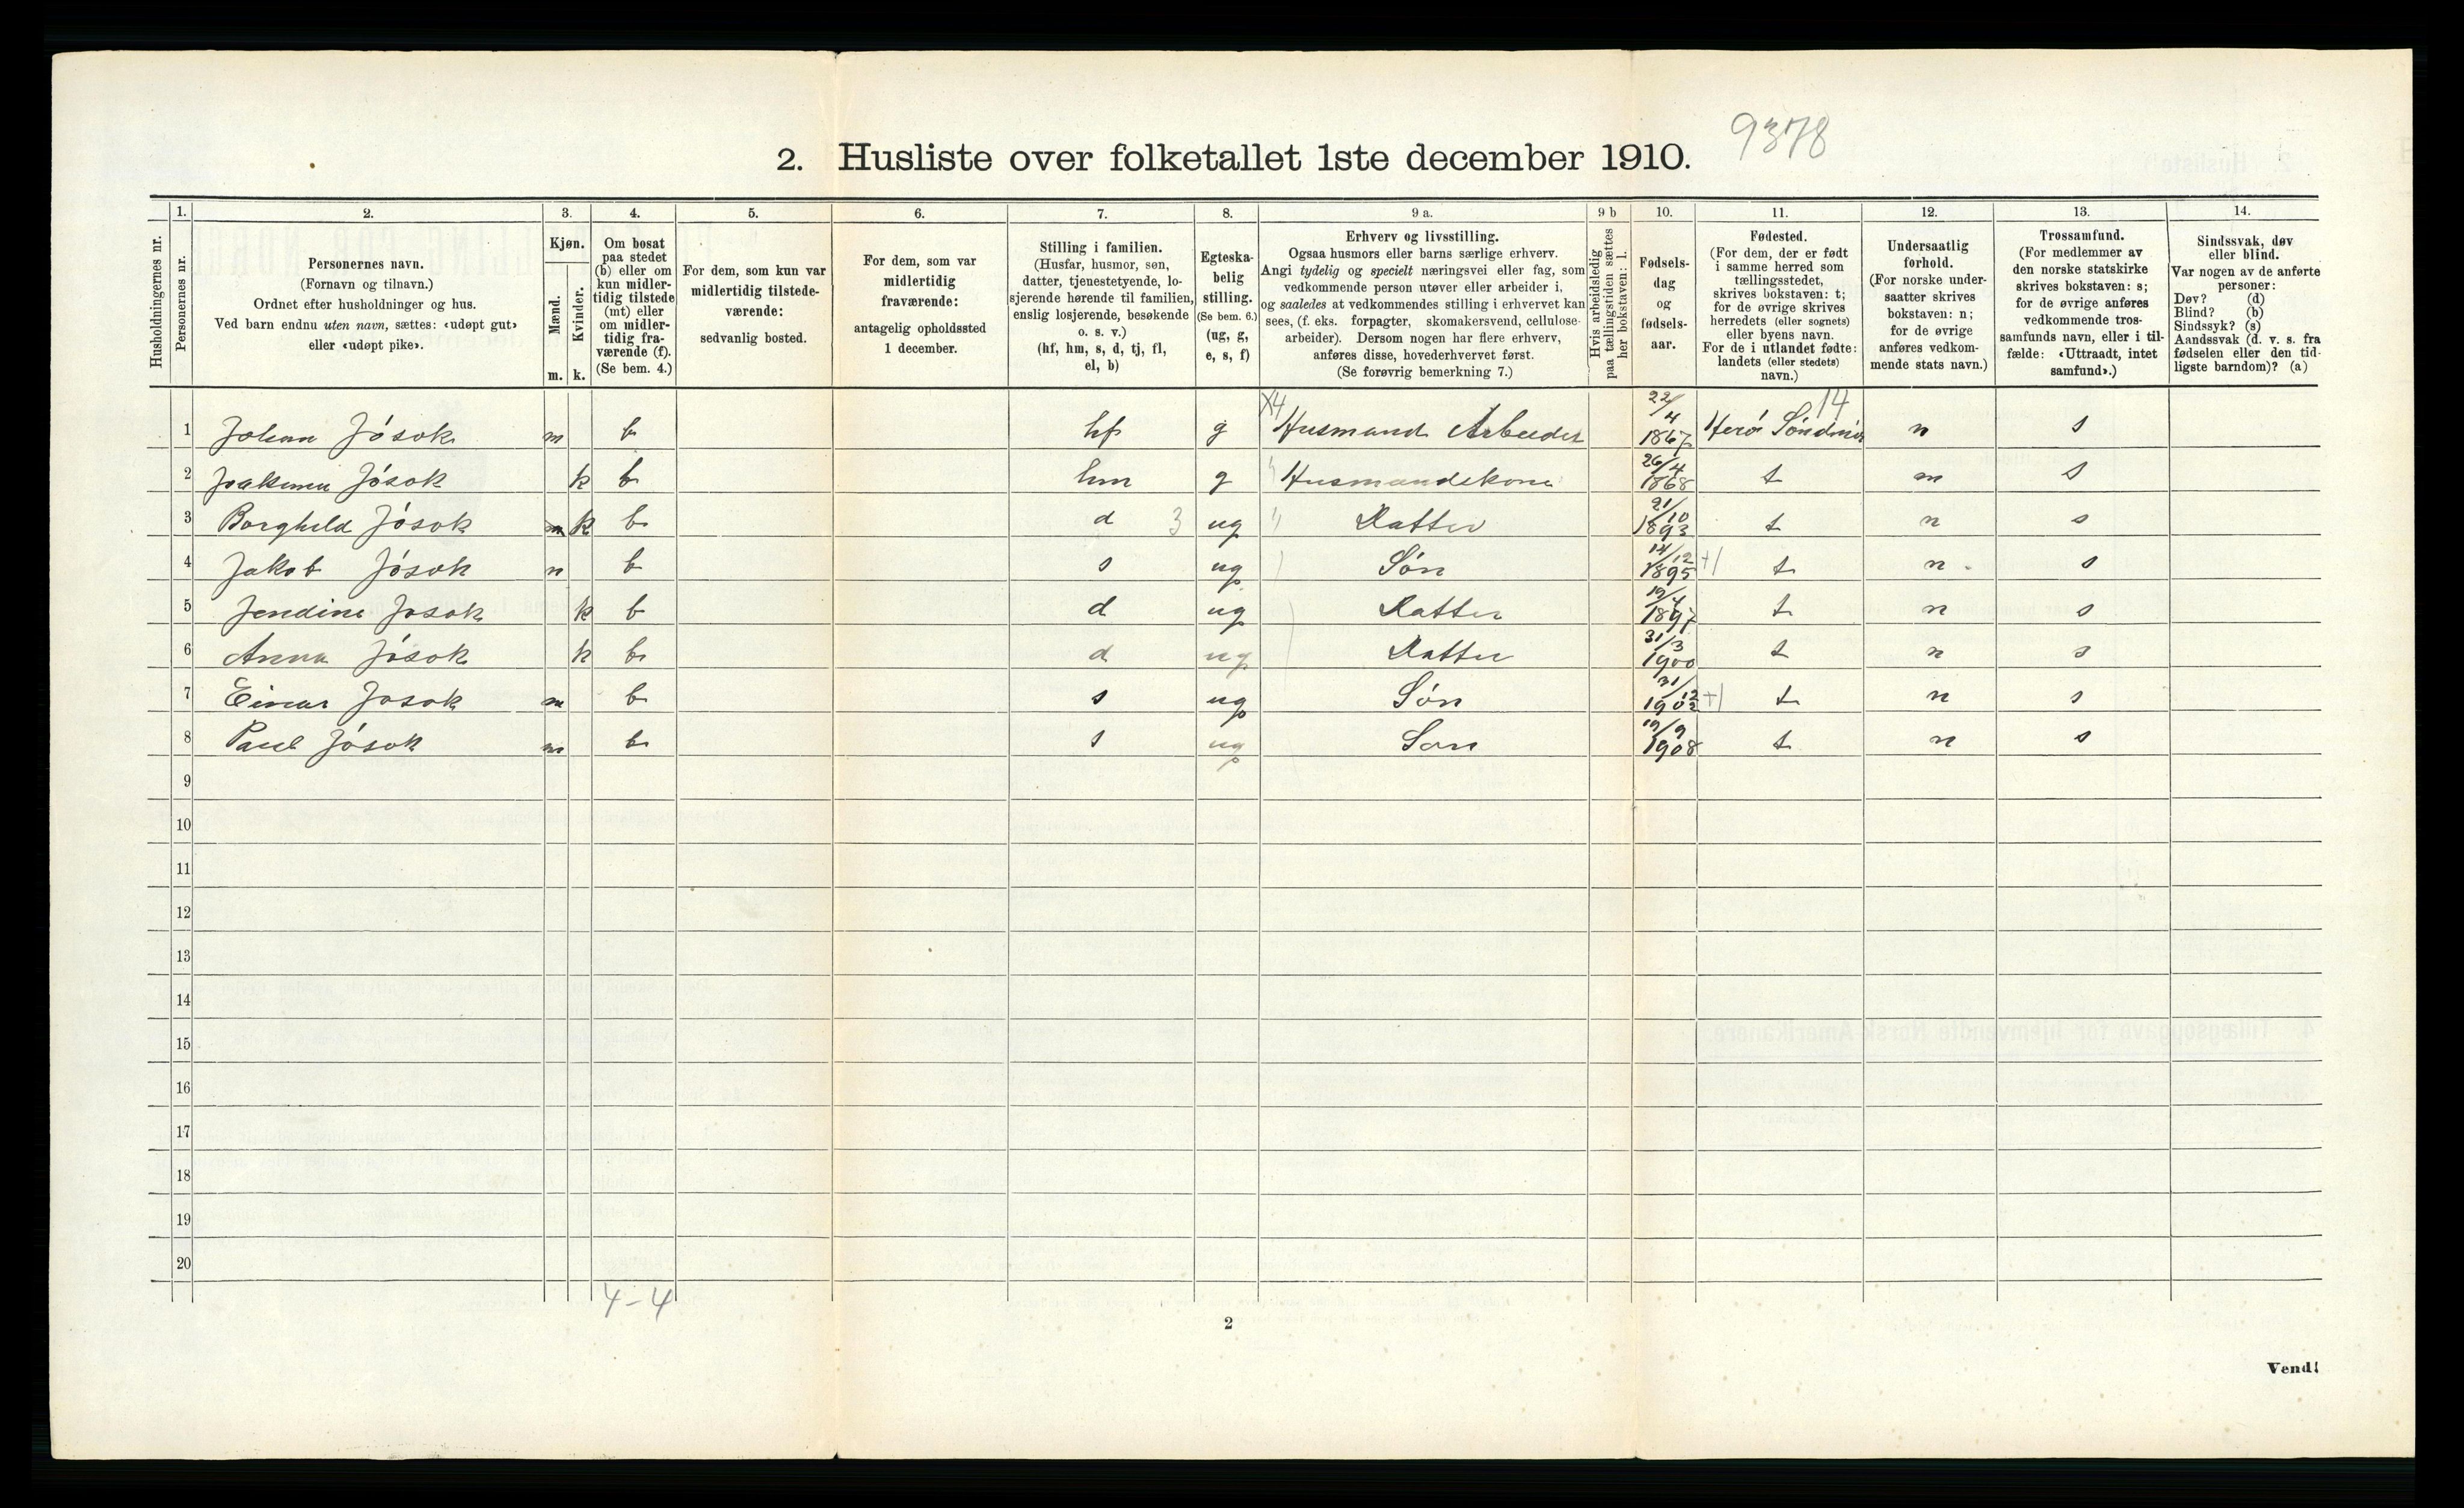 9378
2. Husliste over folketallet 1ste december 1910.
Husholdningernes nr.
1.
Personernes nr.
2.
Personernes navn.
(Fornavn og tilnavn.)
Ordnet efter husholdninger og hus.
Ved barn endnu uten navn, sættes: «udøpt gut»
eller «udøpt pike».
3.
Kjøn.
Mænd.
Kvinder.
m. k.
4.
Om bosat
paa stedet
(b) eller om
kun midler-
tidig tilstede
(mt) eller
om midler-
tidig fra-
værende (f).
(Se bem. 4.)
5.
For dem, som kun var
midlertidig tilstede-
værende:
sedvanlig bosted.
6.
For dem, som var
midlertidig
fraværende:
antagelig opholdssted
1 december.
7.
Stilling i familien.
(Husfar, husmor, søn,
datter, tjenestetyende, lo-
sjerende hørende til familien,
enslig losjerende, besøkende
o. s. v.)
(hf, hm, s, d, tj, fl,
el, b)
8.
Egteska-
belig
stilling.
(Se bem. 6.)
(ug, g,
e, s, f)
9 a.
Erhverv og livsstilling.
Ogsaa husmors eller barns særlige erhverv.
Angi tydelig og specielt næringsvei eller fag, som
vedkommende person utøver eller arbeider i,
og saaledes at vedkommendes stilling i erhvervet kan
sees, (f. eks. forpagter, skomakersvend, cellulose-
arbeider). Dersom nogen har flere erhverv,
anføres disse, hovederhvervet først.
(Se forøvrig bemerkning 7.)
9 b
Hvis arbeidsledig
paa tællingstiden sættes
her bokstaven: l.
10.
Fødsels-
dag
og
fødsels-
aar.
11.
Fødested.
(For dem, der er født
i samme herred som
tællingsstedet,
skrives bokstaven: t;
for de øvrige skrives
herredets (eller sognets)
eller byens navn.
For de i utlandet fødte:
landets (eller stedets)
navn.)
12.
Undersaatlig
forhold.
(For norske under-
saatter skrives
bokstaven: n;
for de øvrige
anføres vedkom-
mende stats navn.)
13.
Trossamfund.
(For medlemmer av
den norske statskirke
skrives bokstaven: s;
for de øvrige anføres
vedkommende tros-
samfunds navn, eller i til-
fælde: «Uttraadt, intet
samfund».)
14.
Sindssvak, døv
eller blind.
Var nogen av de anførte
personer:
Døv? (d)
Blind? (b)
Sindssyk? (s)
Aandssvak (d. v. s. fra
fødselen eller den tid-
ligste barndom)? (a)
1 Johan Jósok m b hf g X4 Husmand Arbeider 22/4 1867 Herø Söndmör 14 n s
2 Jósok k b hm g Husmandskone 26/4 1868 t n s
3 Borghild Jósok k b d 3 ug Datter 21/10 1893 t n s
4 Jakob Jósok m b s ug Són 14/12 1895 +1 t n s
5 Jendine Josok k b d ug Datter 1897 t n s
6 Anna Jósok k b d ug Datter 31/3 1900 t n s
7 Einar Josok m b s ug Són 31/12 1902 +1 t n s
8 Paul Jósok m b s ug Son 19/9 1908 t n s
9
10
11
12
13
14
15
16
17
18
19
20
4-4
2
Vend!